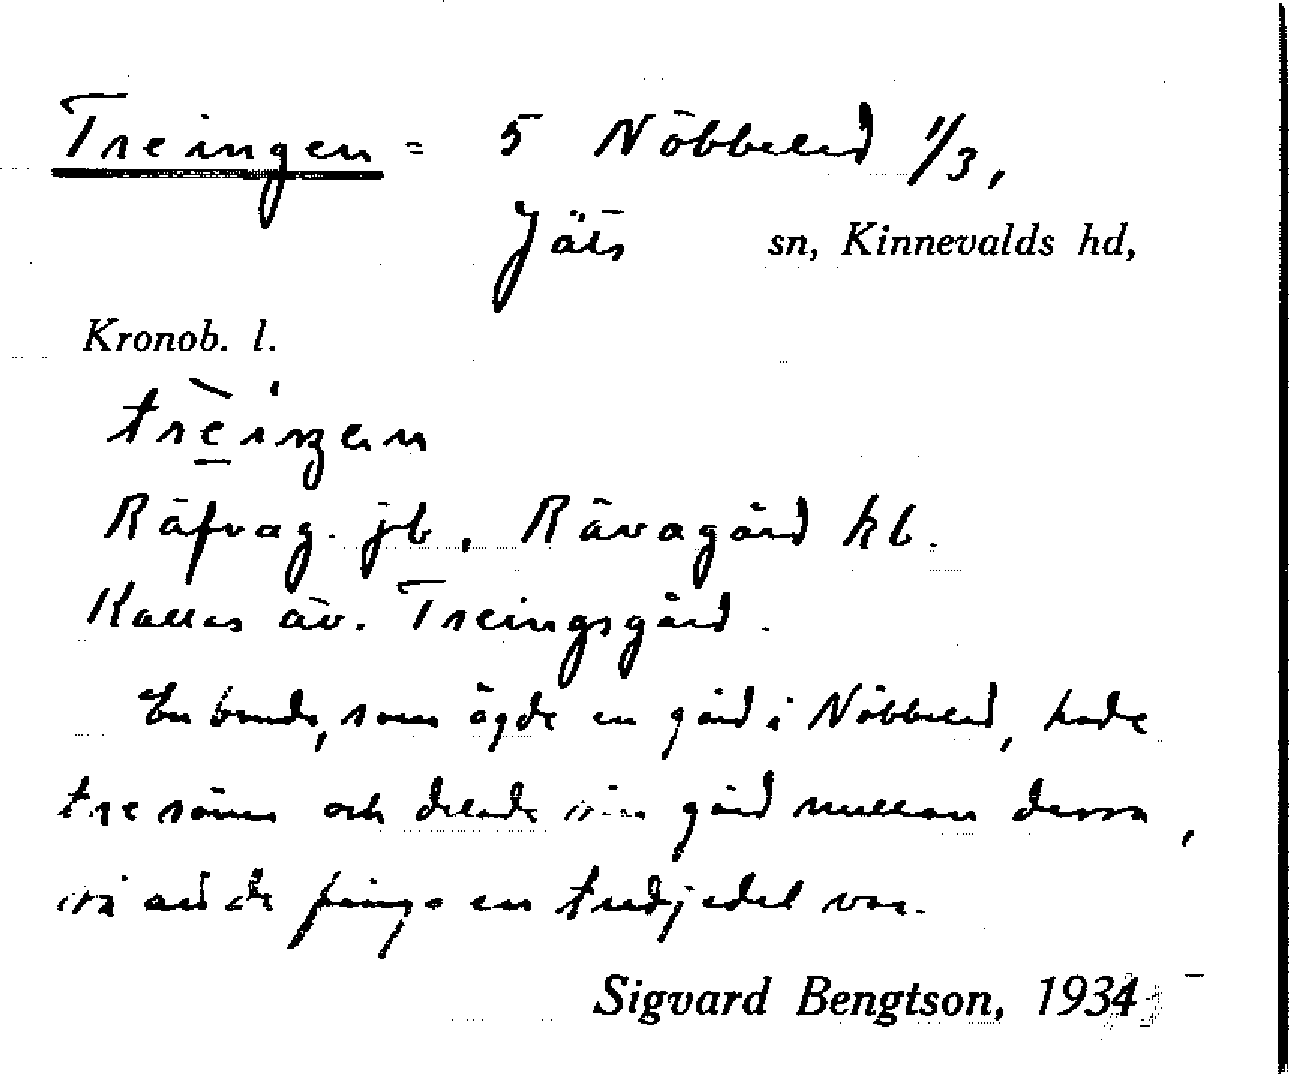 Treingen = 5 Nöbbeled 1/3,
Jäts sn, Kinnevalds hd,
Kronob. l.
trèiŋen
Räfvag. jb, Rävagård kb.
Kallas äv. Treingsgård.
En bonde, som ägde en gård i Nöbbeled, hade
tre söner och delade sin gård mellan dessa,
så att de fingo en tredjedel var.
Sigvard Bengtson, 1934